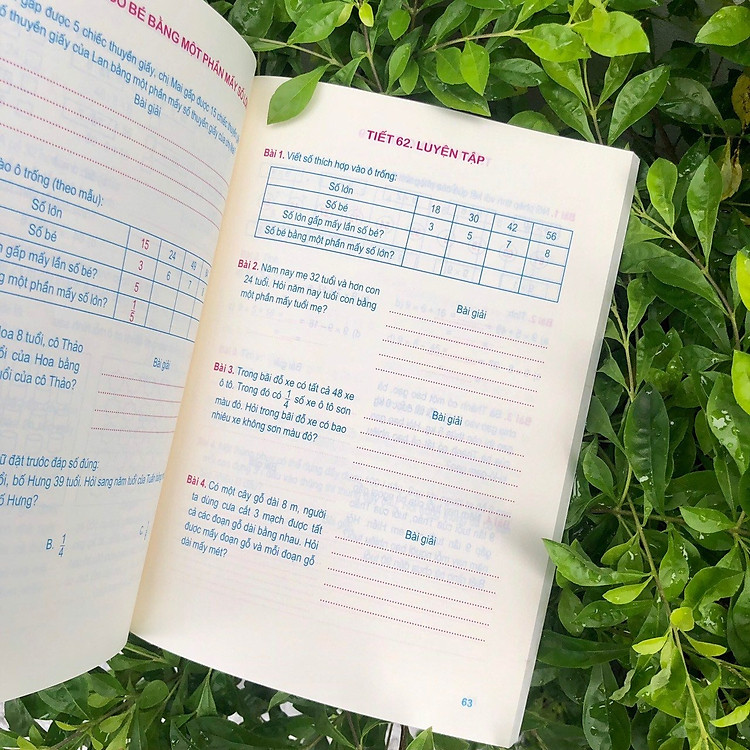 SỐ BÉ BẰNG MỘT PHẦN MẤY SỐ
gấp được 5 chiếc thuyền giấy, chị Mai gấp được 15 chiếc thuyền
số thuyền giấy của Lan bằng một phần mấy số thuyền giấy của chị
Bài giải
vào ô trống (theo mẫu):
Số lớn 15 24
Số bé 3 6 7
gấp mấy lần số bé? 5
bằng một phần mấy số lớn? 1/5
Hoa 8 tuổi, cô Thảo
tuổi của Hoa bằng
tuổi của cô Thảo?
Bài giải
đặt trước đáp số đúng:
bố Hưng 39 tuổi. Hỏi sang năm tuổi của Tuấn
bố Hưng?
B. 1/4
TIẾT 62. LUYỆN TẬP
Bài 1. Viết số thích hợp vào ô trống:
Số lớn 18 30 42 56
Số bé 3 5 7 8
Số lớn gấp mấy lần số bé?
Số bé bằng một phần mấy số lớn?
Bài 2. Năm nay mẹ 32 tuổi và hơn con
24 tuổi. Hỏi năm nay tuổi con bằng
một phần mấy tuổi mẹ?
Bài giải
Bài 3. Trong bãi đỗ xe có tất cả 48 xe
ô tô. Trong đó có 1/4 số xe ô tô sơn
màu đỏ. Hỏi trong bãi đỗ xe có bao
nhiêu xe không sơn màu đỏ?
Bài giải
Bài 4. Có một cây gỗ dài 8 m, người
ta dùng cưa cắt 3 mạch được tất
cả các đoạn gỗ dài bằng nhau. Hỏi
được mấy đoạn gỗ và mỗi đoạn gỗ
dài mấy mét?
Bài giải
63